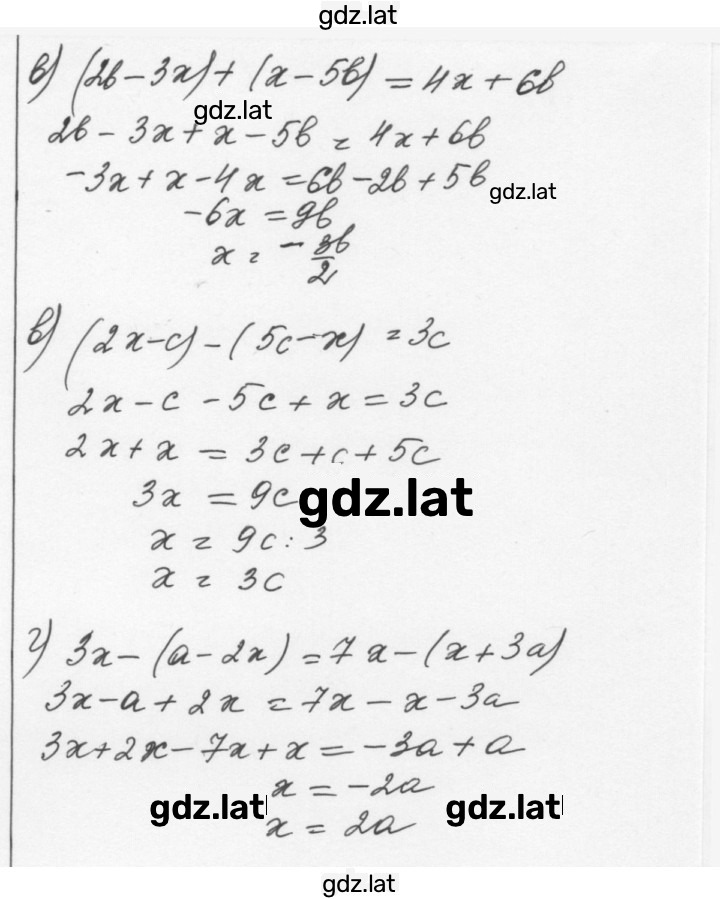 gdz.lat
в) (2b - 3x) + (x - 5b) = 4x + 6b
gdz.lat
2b - 3x + x - 5b = 4x + 6b
-3x + x - 4x = 6b - 2b + 5b
gdz.lat
-6x = 9b
x = -3b/2
в) (2x - c) - (5c - x) = 3c
2x - c - 5c + x = 3c
2x + x = 3c + c + 5c
3x = 9c
gdz.lat
x = 9c : 3
x = 3c
г) 3x - (a - 2x) = 7x - (x + 3a)
3x - a + 2x = 7x - x - 3a
3x + 2x - 7x + x = -3a + a
x = -2a
gdz.lat gdz.lat
x = 2a
gdz.lat